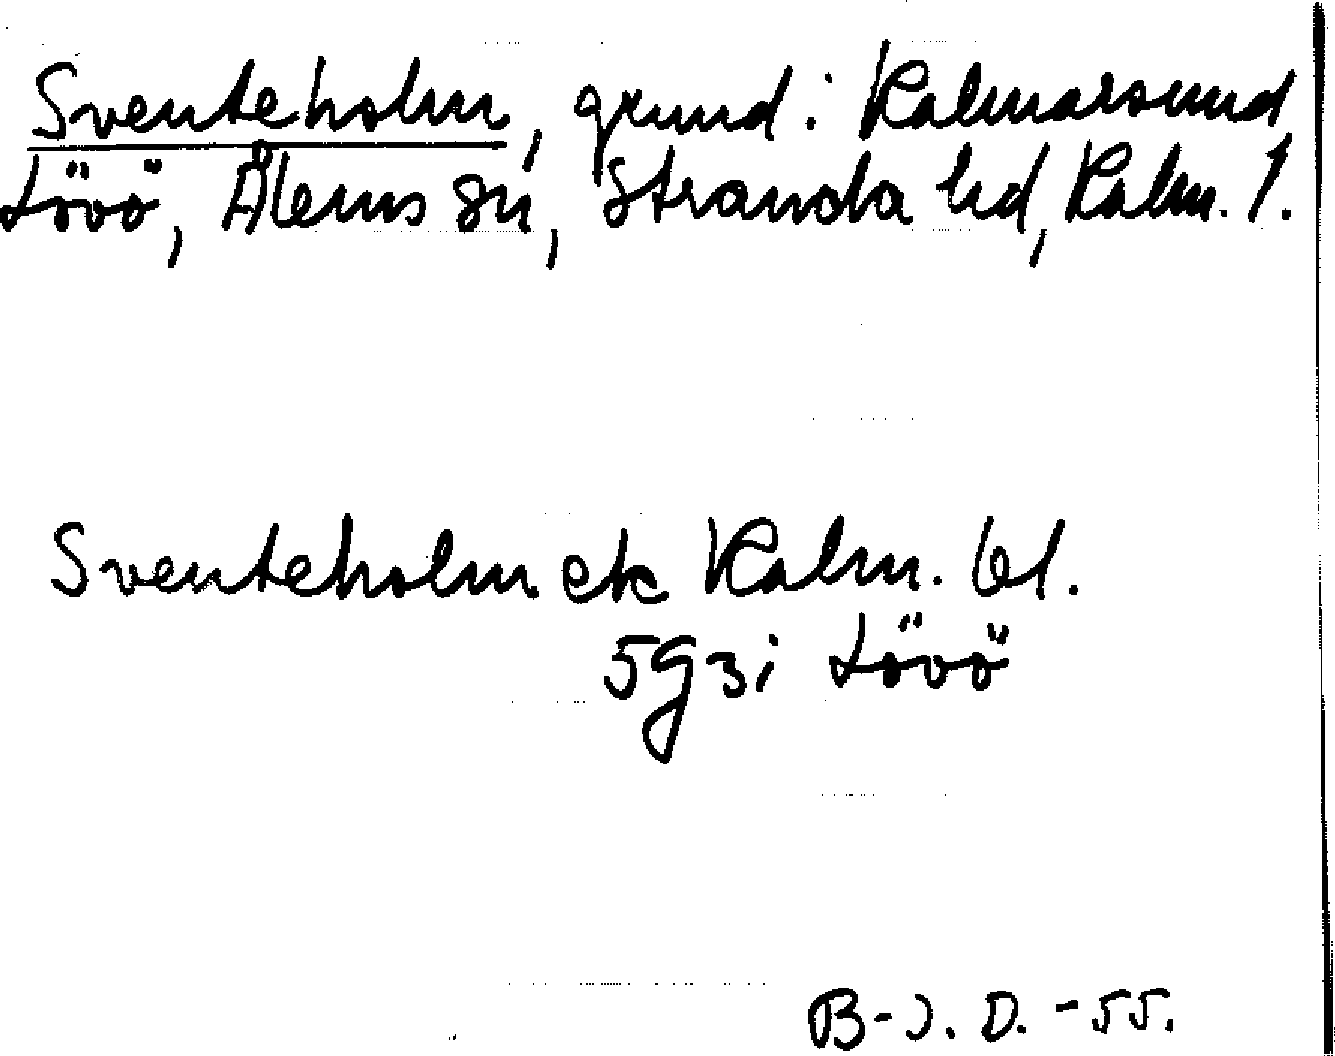 Sventeholm, grund i Kalmarsund
Lövö, Ålems sn, Stranda hd, Kalm. l.
Sventeholm ek Kalm. bl.
5g3i Lövö
B-J. D. -55.